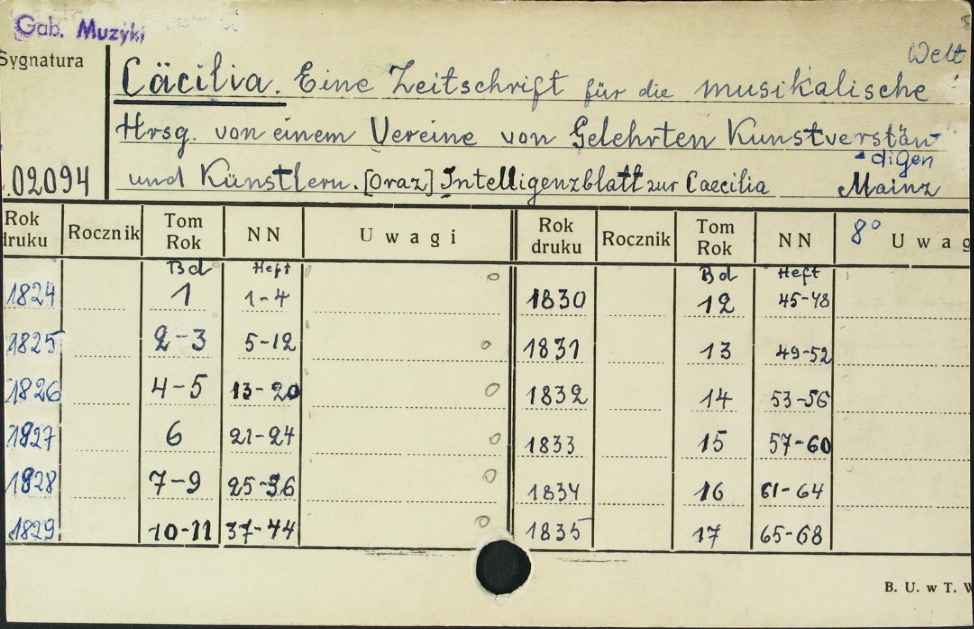 Gab. Muzyki
Sygnatura
Welt
Cäcilia. Eine Zeitschrift für die musikalische
Hrsg. von einem Vereine von Gelehrten Kunstverstän-
digen
02094 und Künstlern. [Oraz] Intelligenzblatt zur Caecilia Mainz
Rok druku Rocznik Tom Rok NN Uwagi Rok druku Rocznik Tom Rok NN 8° Uwag
Bd Heft Bd Heft
1824 1 1-4 1830 12 45-48
1825 2-3 5-12 1831 13 49-52
1826 4-5 13-20 1832 14 53-56
1827 6 21-24 1833 15 57-60
1828 7-9 25-36 1834 16 61-64
1829 10-11 37-44 1835 17 65-68
B. U. w T. W